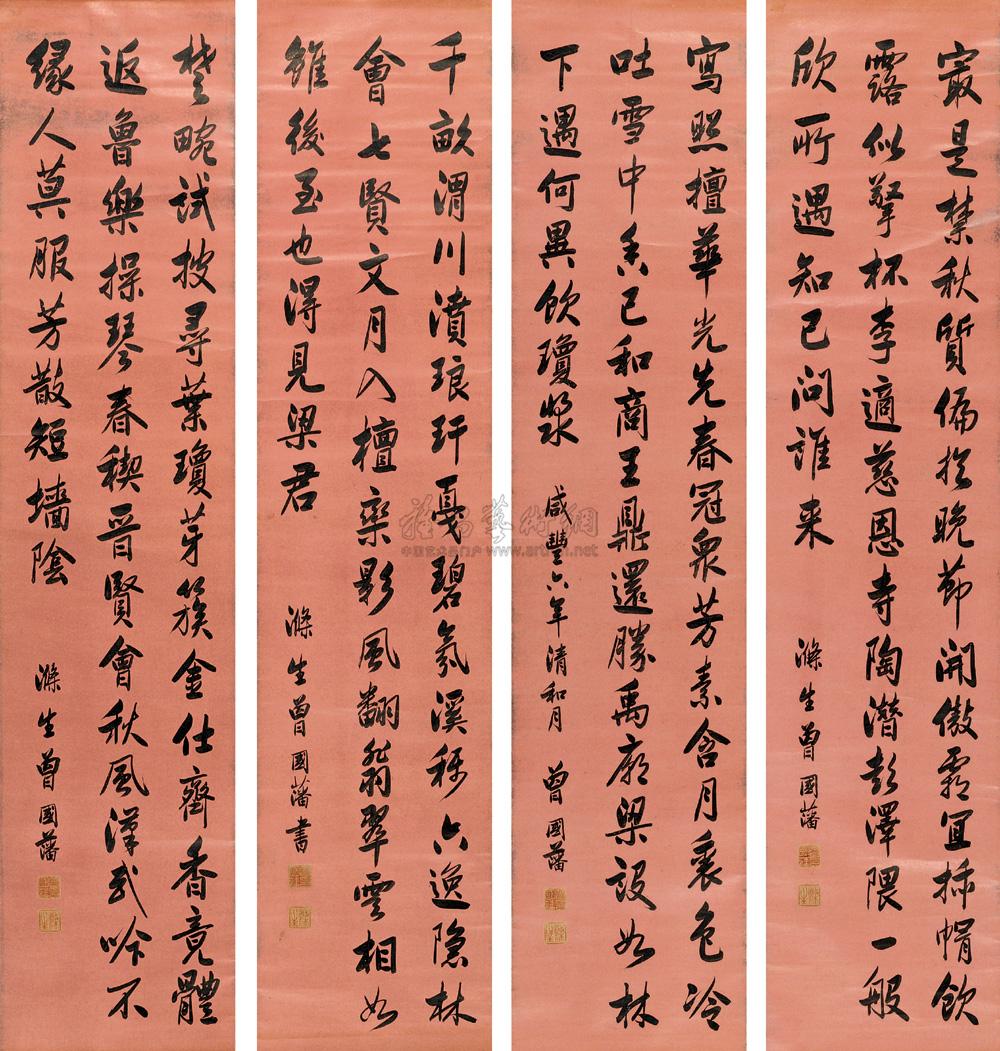 最是禁秋質偏於晚節開傲霜宜插帽飲
露似擎杯李適慈恩寺陶潛彭澤隈一般
欣所遇知己問誰来
滌生曾國藩
寫照擅華光先春冠衆芳素含月裏色冷
吐雪中香已和商王鼎還勝禹廟梁設如林
下遇何異飲瓊漿
咸豐六年清和月
曾國藩
千畝渭川濆琅玕戛碧氛溪稱六逸隱林
會七賢文月入檀欒影風翻翡翠雲相如
雖後至也得見梁君
滌生曾國藩書
楚畹試搜尋葉瓊芽簇金仕齊香竟體
返魯樂操琴春禊晋賢會秋風漢武吟不
緣人莫服芳散短墻陰
滌生曾國藩
雅昌藝術網
中国艺术品门户 www.artron.net